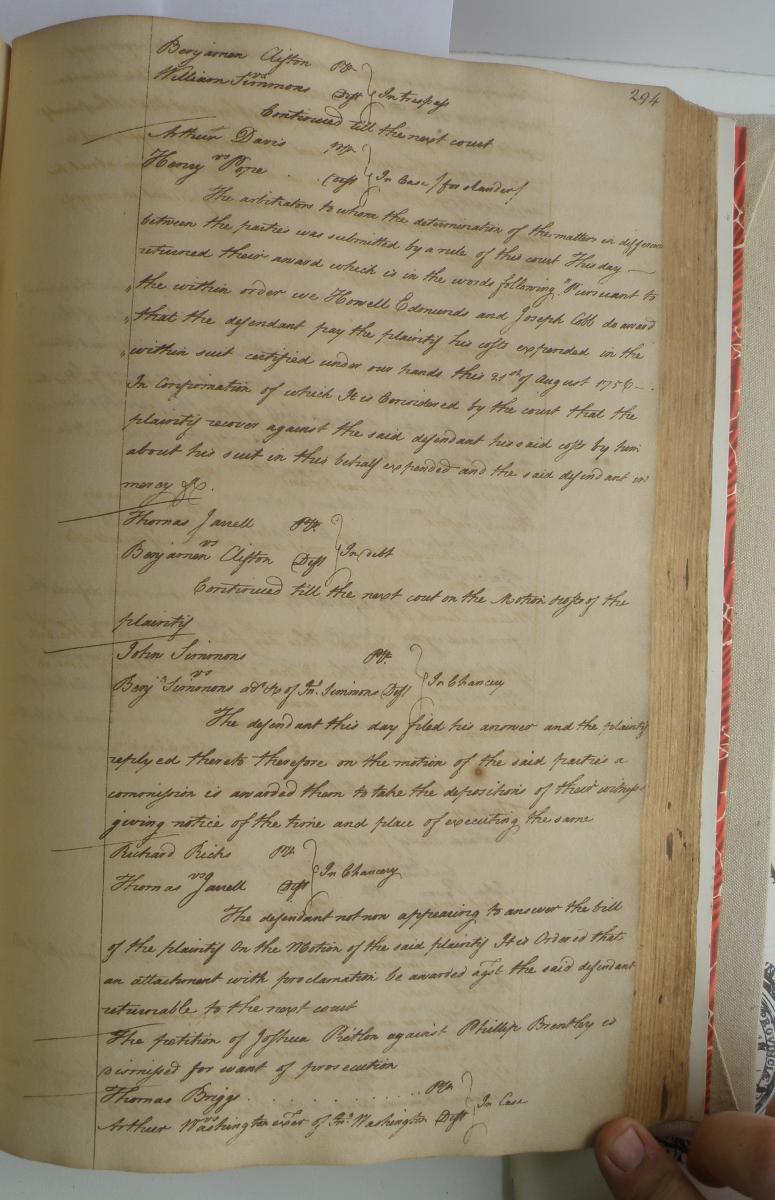 294
Benjamen Clifton Plt.
vs
William Simmons Deft } In trespass
Continued till the next court
Arthur Davis Plt.
vs
Henry Pope . . Deft } In Case / for slander /
The arbitrators to whom the determination of the matters in difference
between the parties was submitted by a rule of this court This day —
returned their award which is in the words following "Pursuant to
" the within order we Howell Edmunds and Joseph Cobb do award
" that the defendant pay the plaintif his costs expended in the
" within suit certified under our hands this 21st of August 1756 —
In Confirmation of which It is Considered by the court that the
plaintif recover against the said defendant his said costs by him
about his suit in this behalf expended and the said defendant in
mercy &c.
Thomas Jarrell Plt.
vs
Benjamen Clifton Deft } In debt
Continued till the next cout on the Motion & costs of the
plaintif
John Simmons Plt.
vs
Benj. Simmons adr. &c of Jno. Simmons Deft } In Chancery
The defendant this day filed his answer and the plaintif
replyed thereto therefore on the motion of the said parties a
commission is awarded them to take the depositions of their witnesses
giving notice of the time and place of executing the same
Richard Ricks Plt.
vs
Thomas Jarrell Deft } In Chancery
The defendant not now appearing to answer the bill
of the plaintif On the Motion of the said plaintif It is Ordered that
an attachment with proclamation be awarded agst the said defendant
returnable to the next court
The petition of Joshua Pretlon against Phillip Brantley is
dismissed for want of prosecution
Thomas Briggs . . . . . . . . . . . . Plt.
vs
Arthur Washington exer. of Jno. Washington Deft } In Case
PROVINCIA